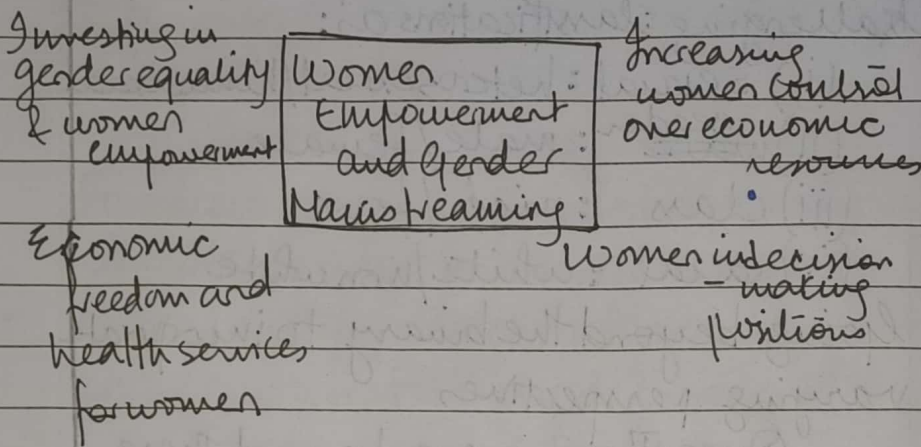 Investing in
gender equality
& women
empowerment
Women
Empowerment
and Gender
Mainstreaming:
Increasing
women control
over economic
resources
Economic
freedom and
health services
for women
Women in decision
- making
positions